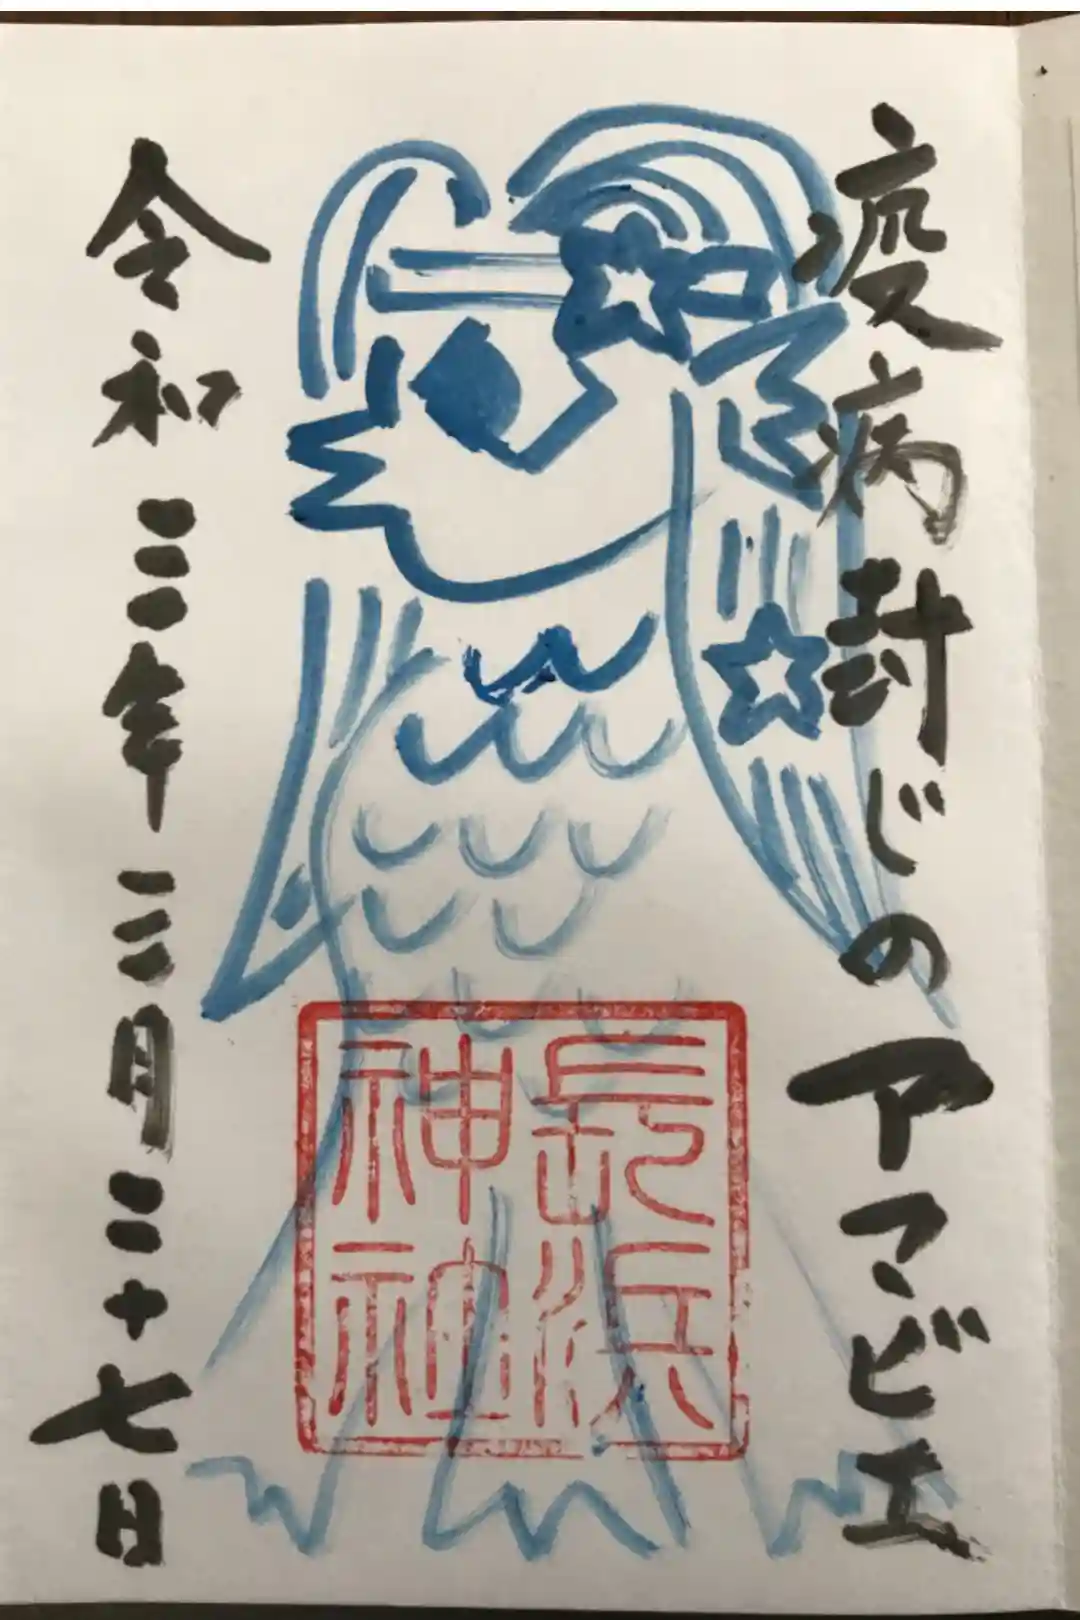 疫病封じのアマビエ
長浜
神社
令和三年三月二十七日